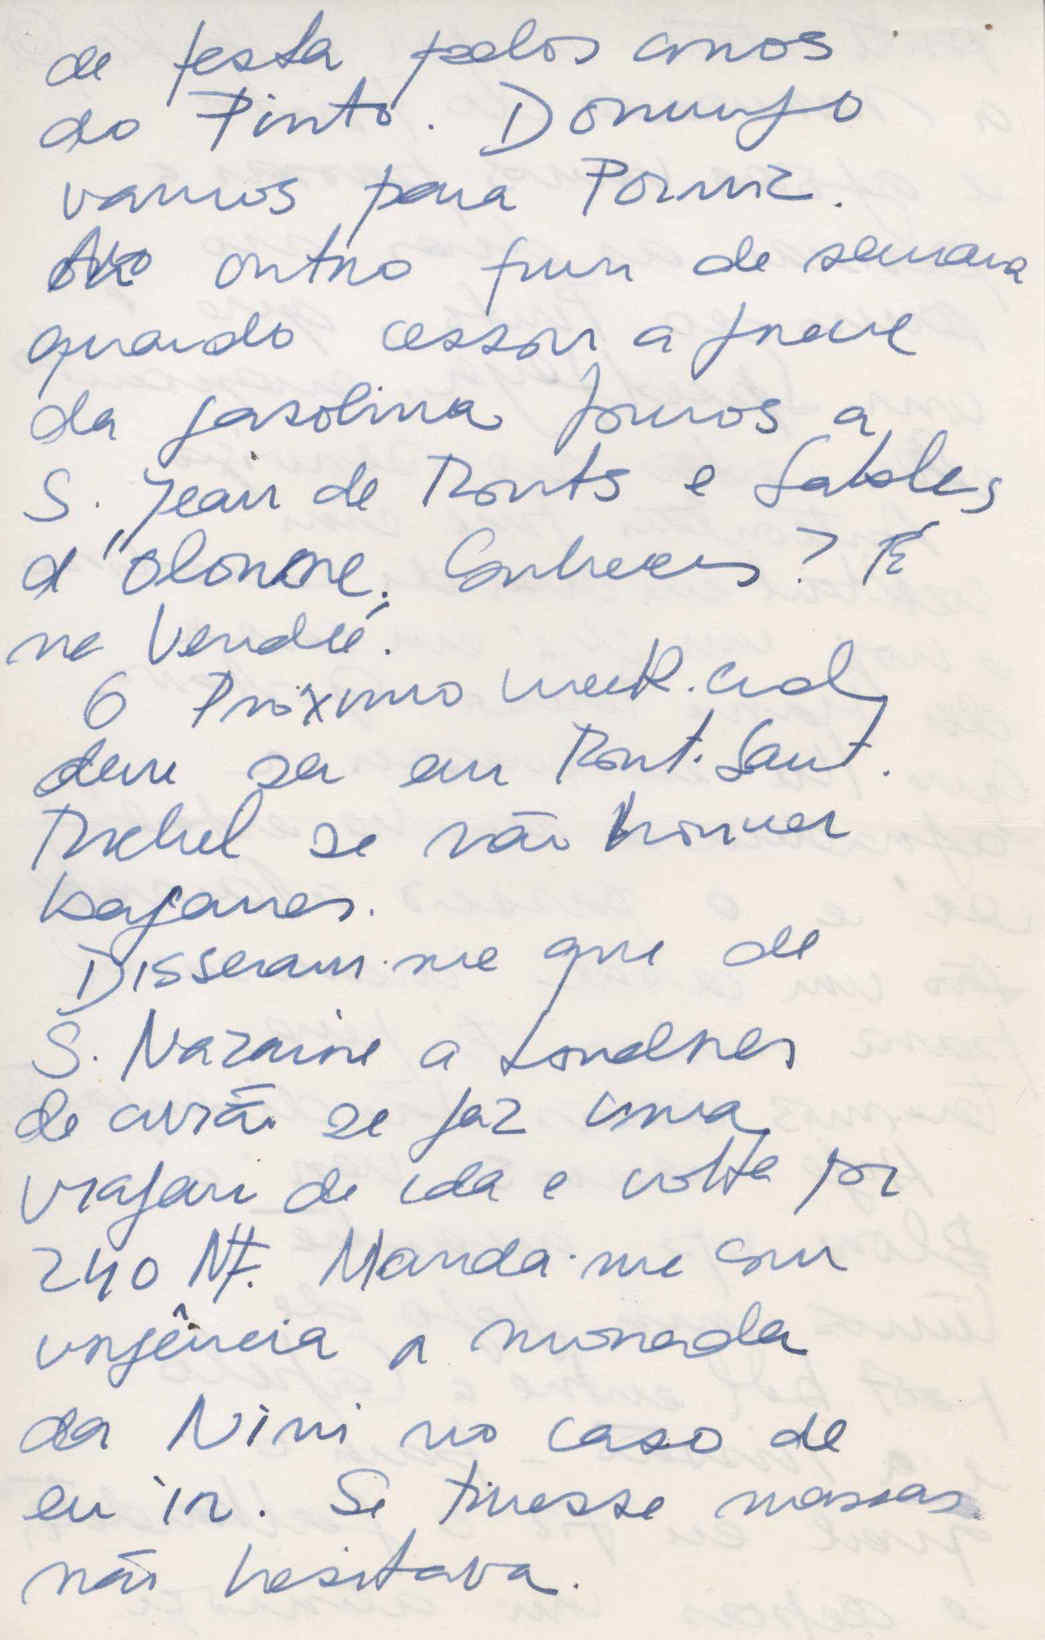 de festa pelos anos
do Pinto. Domingo
vamos para Pornic.
No outro fim de semana
quando cessou a greve
da gasolina fomos a
S. Jean de Monts e Sables
d'Olonne. Conheces? É
na Vendée.
O Próximo week-end
deve ser em Mont-Saint.
Michel se não houver
bagunes.
Disseram-me que de
S. Nazaire a Londres
de avião se faz uma
viagem de ida e volta por
240 NF. Manda-me com
urgência a morada
da Nini no caso de
eu ir. Se tivesse massas
não hesitava.